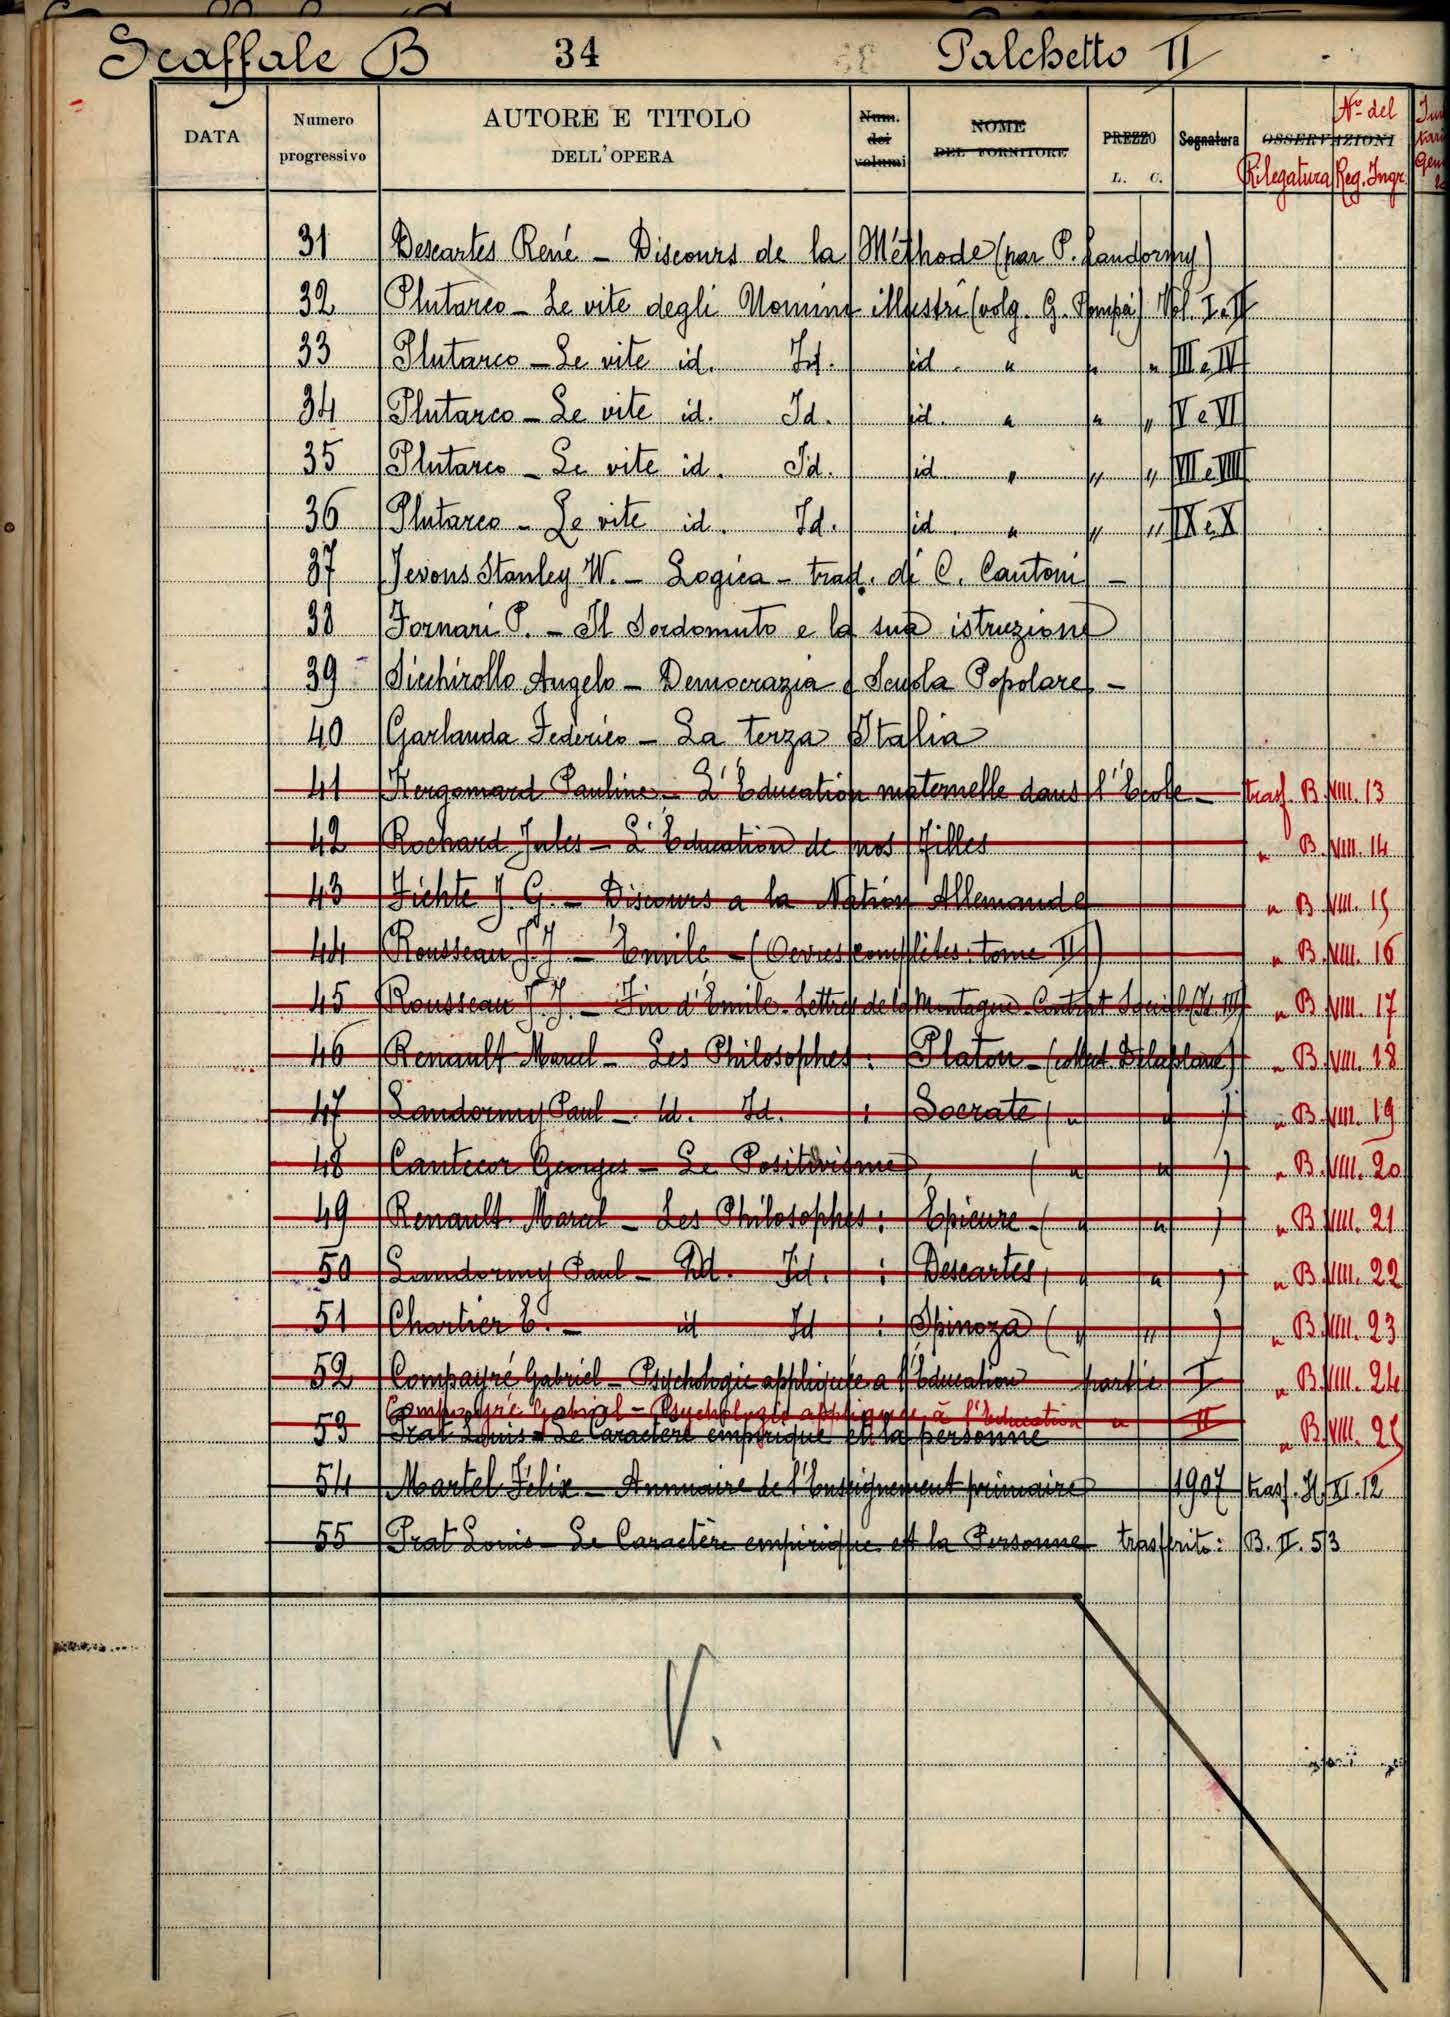 Scaffale B 34 Palchetto II
DATA Numero progressivo AUTORE E TITOLO DELL'OPERA Num. dei volumi NOME DEL FORNITORE PREZZO L. C. Segnatura OSSERVAZIONI Rilegatura N° del Reg. Ingr.
31 Descartes René – Discours de la Méthode (par P. Landormy)
32 Plutarco – Le vite degli Uomini illustri (volg. G. Pompei) Vol. I e II
33 Plutarco – Le vite id. Id. id. " " " III e IV
34 Plutarco – Le vite id. Id. id. " " " V e VI
35 Plutarco – Le vite id. Id. id. " " " VII e VIII
36 Plutarco – Le vite id. Id. id. " " " IX e X
37 Jevons Stanley W. – Logica – trad. di C. Cantoni –
38 Fornari P. – Il Sordomuto e la sua istruzione
39 Sicchirollo Angelo – Democrazia e Scuola Popolare –
40 Garlanda Federico – La terza Italia
41 Kergomard Pauline – L'Education maternelle dans l'Ecole – trasf. B. VIII. 13
42 Rochard Jules – L'Education de nos Filles " B. VIII. 14
43 Fichte J. G. – Discours a la Nation Allemande " B. VIII. 15
44 Rousseau J. J. – Emile – (Oevres complètes: tome II) " B. VIII. 16
45 Rousseau J. J. – Fin d'Emile. Lettres de la Montagne. Contrat Social (Id. III) " B. VIII. 17
46 Renault Marcel – Les Philosophes : Platon – (collect. Delaplane) " B. VIII. 18
47 Landormy Paul – Id. Id. : Socrate ( " " ) " B. VIII. 19
48 Cantecor Georges – Le Positivisme ( " " ) " B. VIII. 20
49 Renault Marcel – Les Philosophes : Epicure – ( " " ) " B. VIII. 21
50 Landormy Paul – Id. Id. : Descartes ( " " ) " B. VIII. 22
51 Chartier E. – id Id : Spinoza ( " " ) " B. VIII. 23
52 Compayré Gabriel – Psychologie appliquée a l'Education partie I " B. VIII. 24
Compayré Gabriel – Psychologie appliquée à l'Education " II
53 Prat Louis – Le Caractère empirique et la personne " B. VIII. 25
54 Martel Félix – Annuaire de l'Enseignement primaire 1907 trasf. H. XI. 12
55 Prat Louis – Le Caractère empirique et la Personne trasferito: B. II. 53
V.